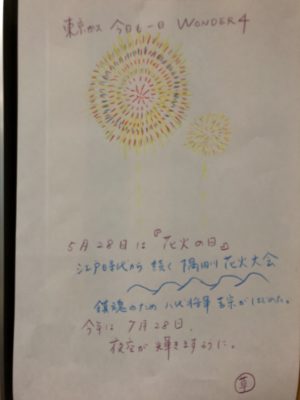 東京ガス 今日も一日 WONDER4
5月28日は『花火の日』
江戸時代から続く隅田川花火大会
鎮魂のため 八代将軍 吉宗がはじめた。
今年は 7月28日.
夜空が輝きますように。
草